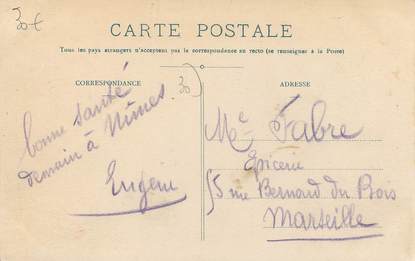 30€
CARTE POSTALE
Tous les pays étrangers n'acceptent pas la correspondance au recto (se renseigner à la Poste)
CORRESPONDANCE
30
bonne santé
demain à Nîmes.
Eugène
ADRESSE
Mᵉ Fabre
Epicerie
5 rue Bernard du Bois
Marseille